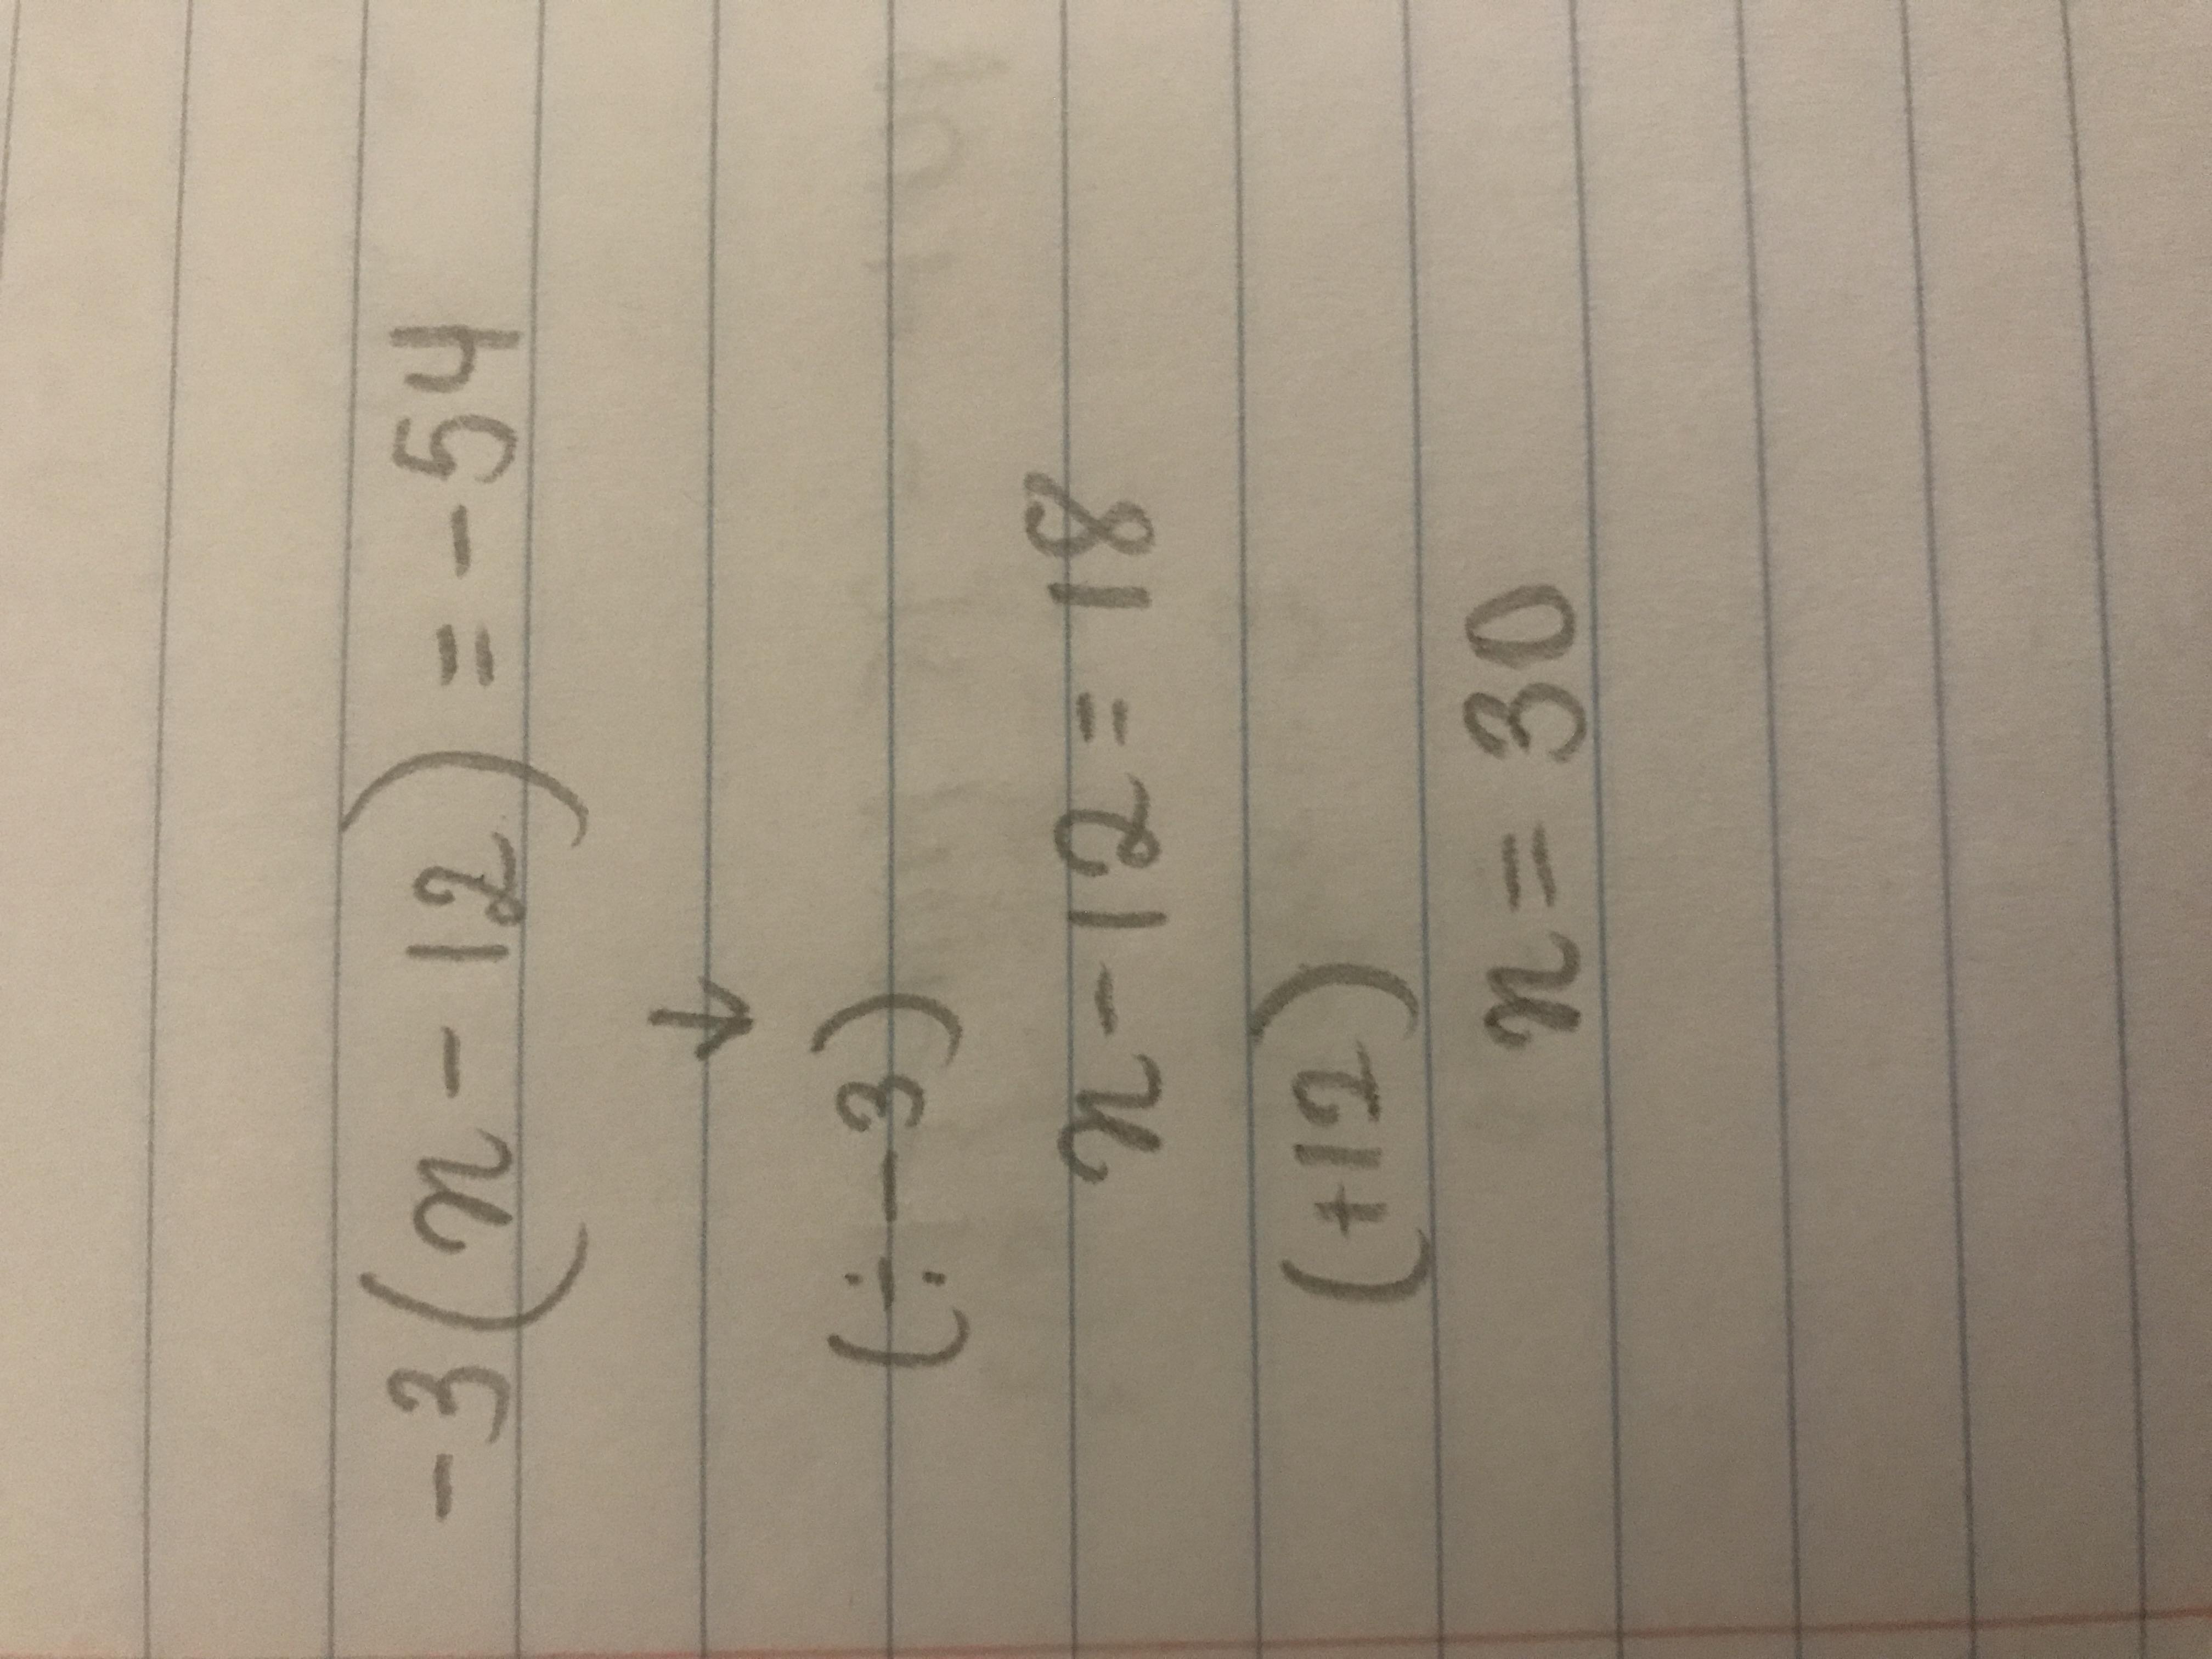 -3(x-12) = -54
↓
(÷-3)
x-12 = 18
(+12)
x = 30